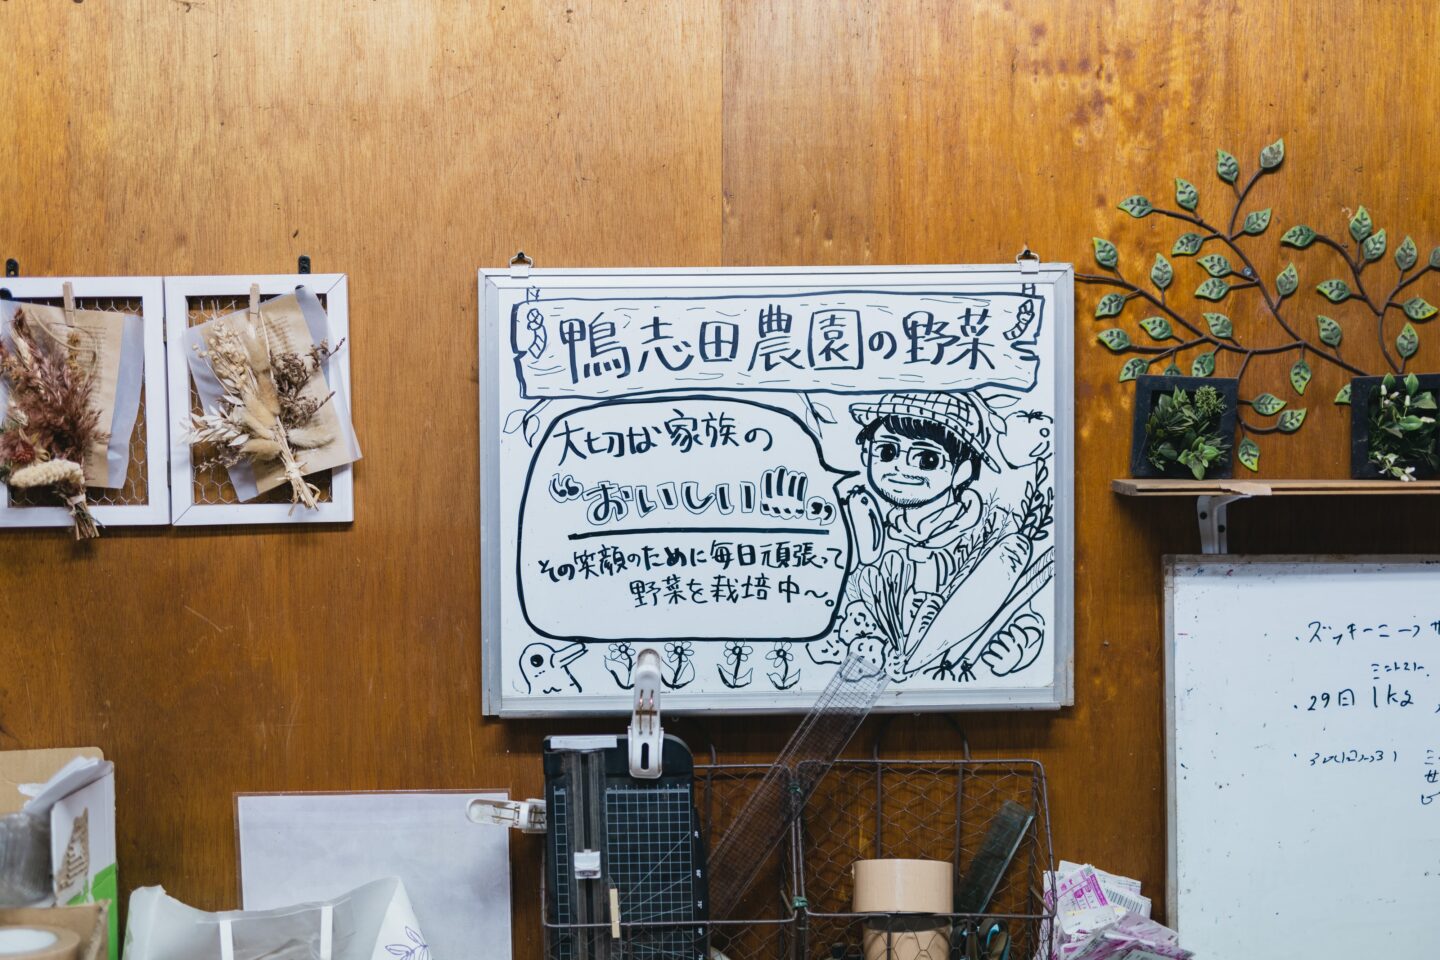 鴨志田農園の野菜
大切な家族の
“おいしい!!!!”
その笑顔のために毎日頑張って
野菜を栽培中〜。
・ズッキーニ
・29日 1kg